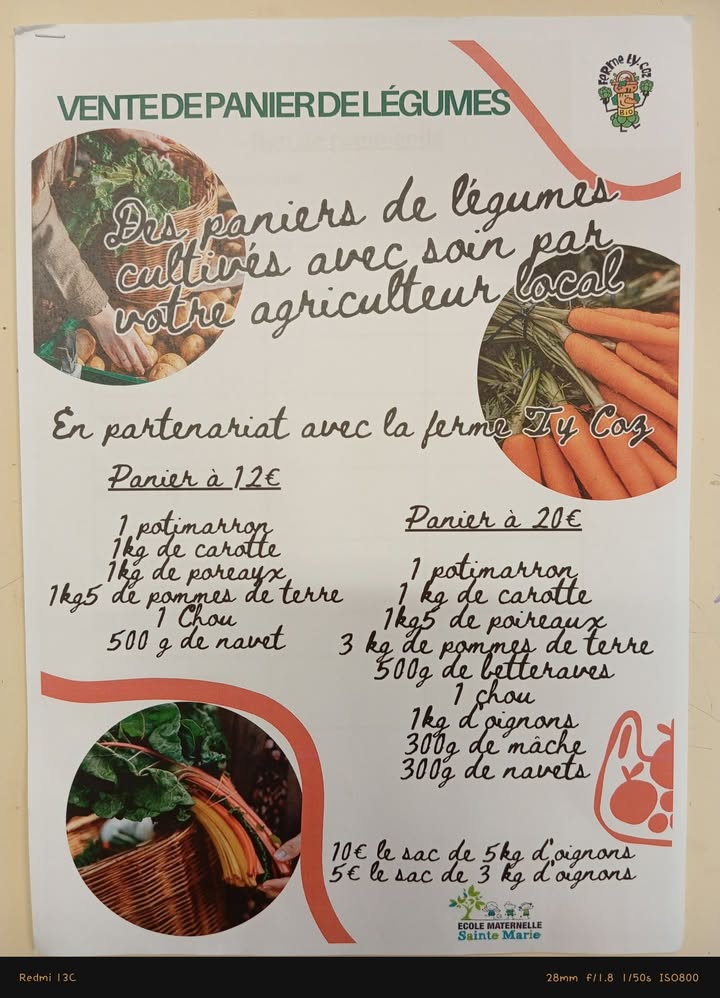 VENTE DE PANIER DE LÉGUMES
FERME TY-COZ
BIO
Des paniers de légumes
cultivés avec soin par
votre agriculteur local
En partenariat avec la ferme Ty Coz
Panier à 12€
1 potimarron
1kg de carotte
1kg de poreaux
1kg5 de pommes de terre
1 Chou
500 g de navet
Panier à 20€
1 potimarron
1 kg de carotte
1kg5 de poireaux
3 kg de pommes de terre
500g de betteraves
1 chou
1kg d'oignons
300g de mâche
300g de navets
10€ le sac de 5kg d'oignons
5€ le sac de 3 kg d'oignons
ECOLE MATERNELLE
Sainte Marie
Redmi 13C
28mm f/1.8 1/50s ISO800